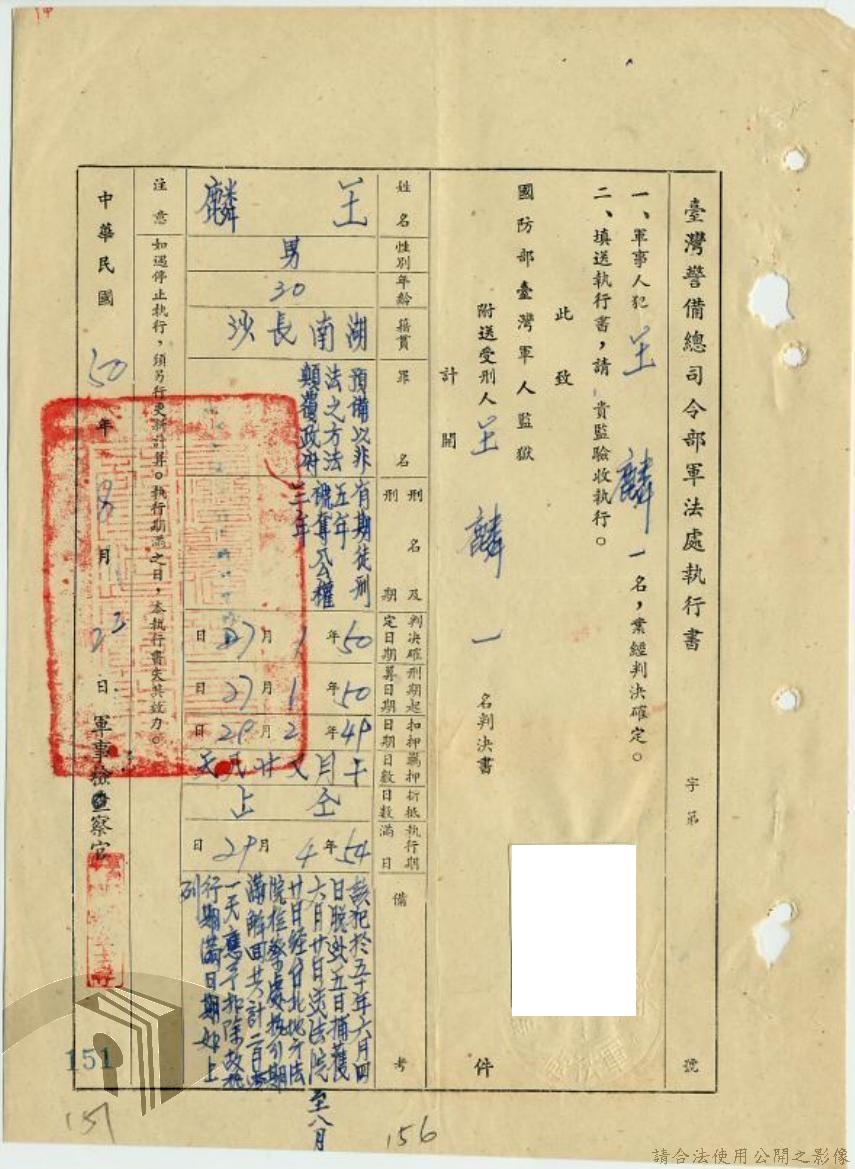 臺灣警備總司令部軍法處執行書
字第
號
一、軍事人犯王麟一名,業經判決確定。
二、填送執行書,請 貴監驗收執行。
此致
國防部臺灣軍人監獄
附送受刑人王麟一名判決書
件
計開
姓名
性別
年齡
籍貫
罪名
刑名及刑期
判決確定日期
刑期起算日期
扣押日期
羈押日數
折抵日數
執行期滿日
備考
王麟
男
30
湖南長沙
預備以非
法之方法
顛覆政府
有期徒刑
五年
褫奪公權
三年
50年1月27日
50年1月27日
49年2月29日
全上
54年4月29日
該犯於五十年六月四
日脫逃五日捕獲
六月廿日送法院至八月
廿日經台北地方法
院檢察處執行期
滿解回共計二月零
一天應予扣除故執
行期滿日期如上
列
注意
如遇停止執行,須另行更新計算。執行期滿之日,本執行書失其效力。
中華民國50年8月23日
軍事檢察官
151
151
156
請合法使用公開之影像